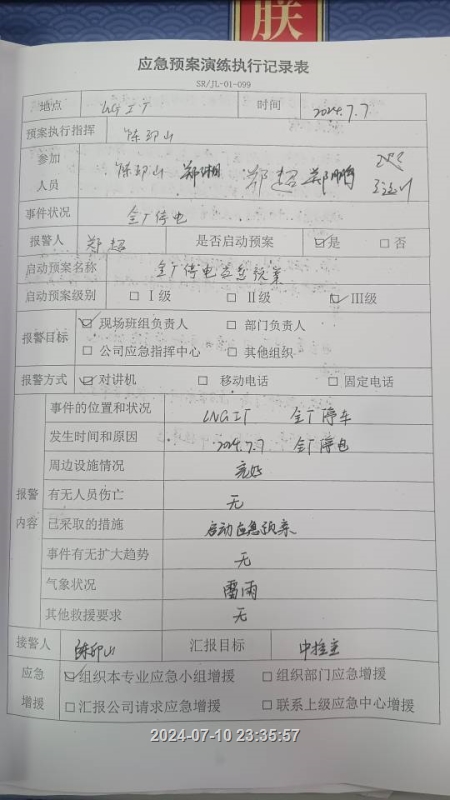 朕
应急预案演练执行记录表
SR/JL-01-099
地点 LNG工厂 时间 2024.7.7
预案执行指挥 陈印山
参加人员 陈印山 郑湘 郑超 郑鹏
事件状况 全厂停电
报警人 郑超 是否启动预案 ☑是 ☐否
启动预案名称 全厂停电应急预案
启动预案级别 ☐Ⅰ级 ☐Ⅱ级 ☑Ⅲ级
报警目标 ☑现场班组负责人 ☐部门负责人
☐公司应急指挥中心 ☐其他组织
报警方式 ☑对讲机 ☐移动电话 ☐固定电话
报警内容 事件的位置和状况 LNG工厂 全厂停车
发生时间和原因 2024.7.7 全厂停电
周边设施情况 完好
有无人员伤亡 无
已采取的措施 启动应急预案
事件有无扩大趋势 无
气象状况 雷雨
其他救援要求 无
接警人 陈印山 汇报目标 中控室
应急增援 ☑组织本专业应急小组增援 ☐组织部门应急增援
☐汇报公司请求应急增援 ☐联系上级应急中心增援
2024-07-10 23:35:57